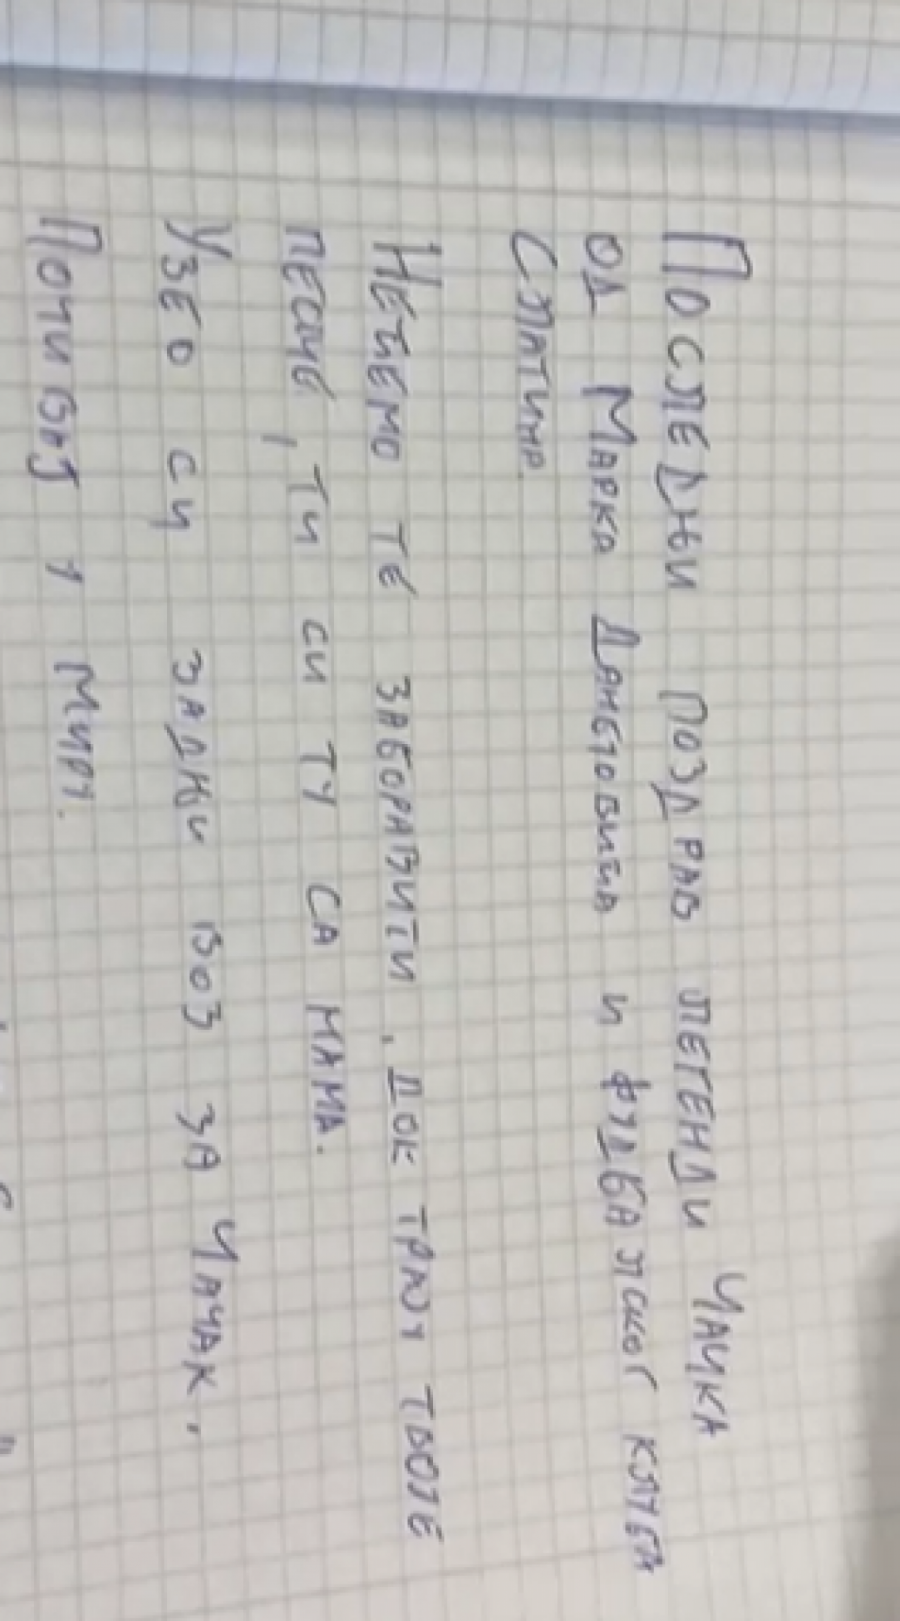 Последњи поздрав легенди Чачка
од Марка Дамбовића и фудбалског клуба
Слатина
Нећемо те заборавити, док трају твоје
песме, ти си ту са нама.
Узео си задњи воз за Чачак,
Почивај у миру.